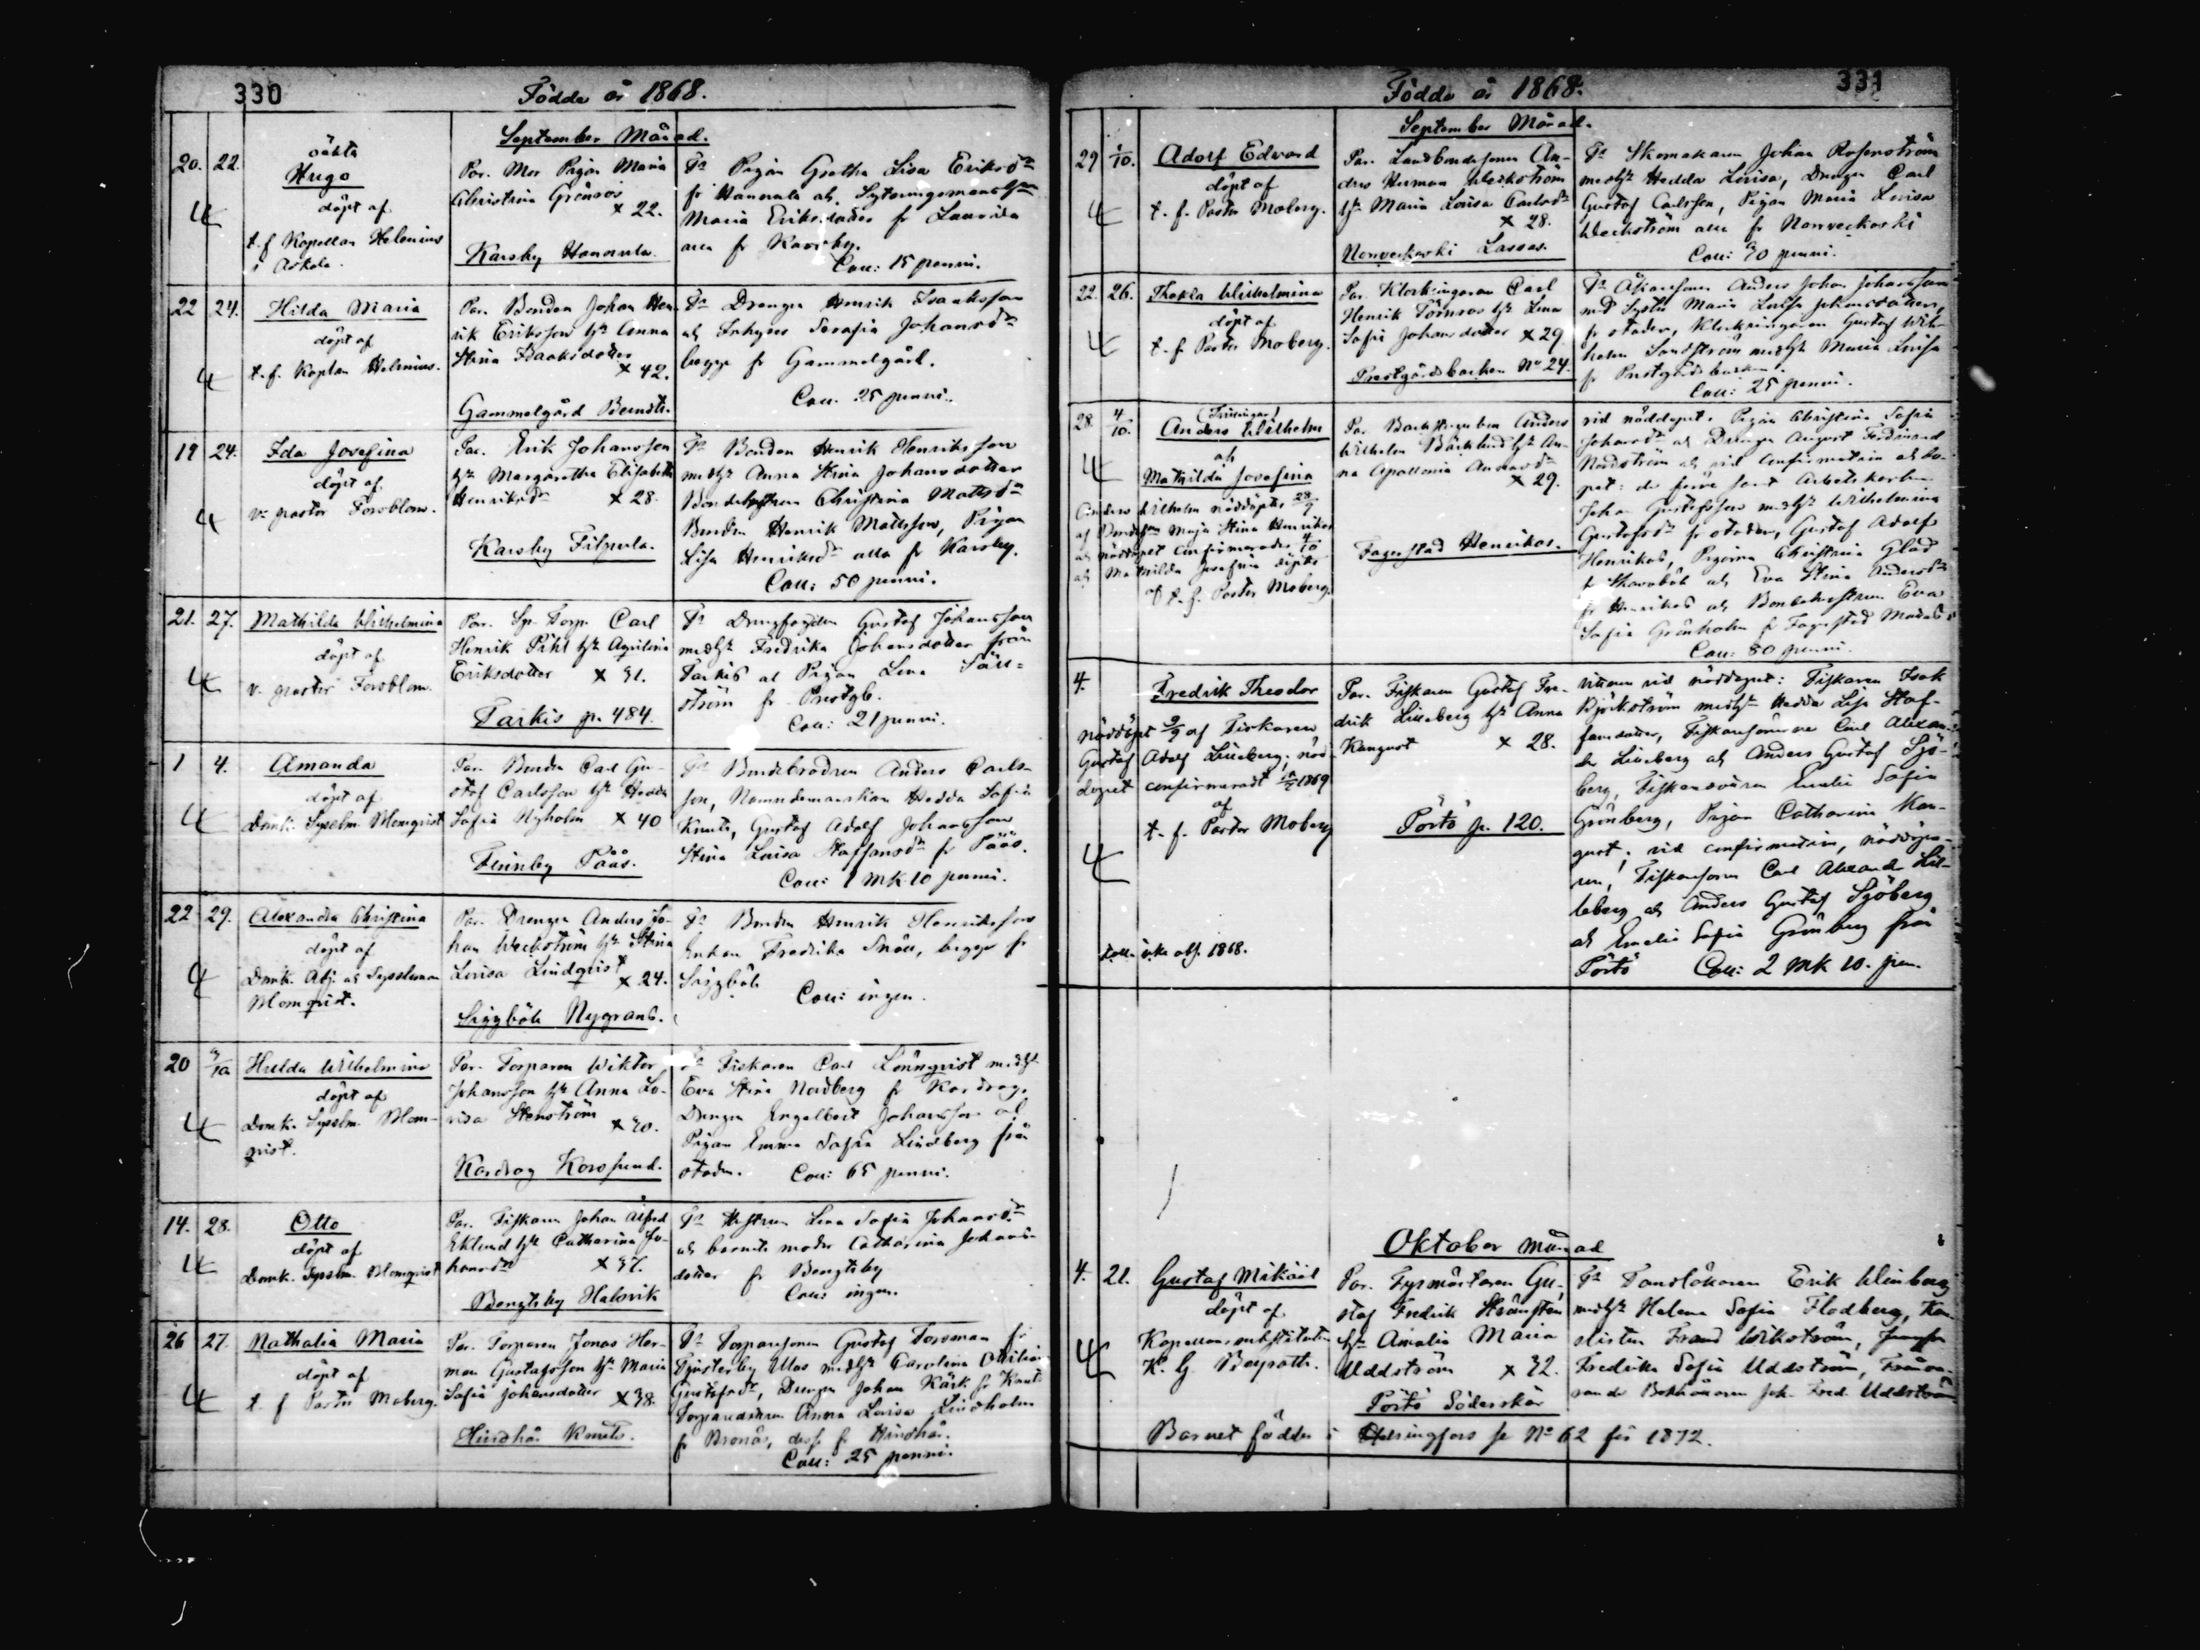 330
Födde år 1868.
September Månad.
20. 22. oäkta
Hugo
döpt af
t. f. Kapellan Helenius
i Askola.
Par. Mor Pigan Maria
Christina Grönroos
x 22.
Karsby Hannula.
Fr Pigan Gretha Lisa Eriksdr
fr Hannula
Maria Eriksdotter fr Laurila
alla fr Karsby.
Coll: 15 penni.
22 24. Hilda Maria
döpt af
t. f. Kaplan Helenius.
Par. Bonden Johan Hen-
rik Eriksson hu Anna
Stina Isaksdotter
x 42.
Gammelgård Berndts.
Fr Drengen Henrik Isaaksson
och Inhyses Serafia Johansdr
begge fr Gammelgård.
Coll. 25 penni.
19 24. Ida Josefina
döpt af
v. pastor Forsblom.
Par. Erik Johansson
hu Margaretha Elisabeth
Henriksdr x 28.
Karsby Filpula.
Fr Bonden Henrik Henriksson
med hu Anna Stina Johansdotter
Bondehustrun Christina Mattsdr
Bonden Henrik Mattsson, Pigan
Lisa Henriksdr alla fr Karsby.
Coll: 50 penni.
21. 27. Mathilda Wilhelmina
döpt af
v. pastor Forsblom.
Par. Sp. Torp. Carl
Henrik Pihl hu Agrilina
Eriksdotter x 31.
Tarkis p. 484.
Fr Drengfogden Gustaf Johansson
med hu Fredrika Johansdotter från
Tarkis och Pigan Lena Säll-
ström fr Prestgb.
Coll: 21 penni.
1 4. Amanda
döpt af
Domk. Sysslm. Blomqvist
Par. Bonden Carl Gu-
staf Carlsson hu Hedda
Sofia Nyholm x 40
Finnby Påås.
Fr Bondebrodren Anders Carls-
son, Nämndemanskan Hedda Sofia
Knuts, Gustaf Adolf Johansson
Stina Lovisa Staffansdr fr Påås.
Coll: 1 mk 10 penni.
22 29. Alexandra Christina
döpt af
Domk. Adj. och Syssloman
Blomqvist.
Par. Drengen Anders Jo-
han Weckström hu Stina
Lovisa Lindqvist
x 24.
Siggböle Nygrans.
Fr Bonden Henrik Henriksson
Enkan Fredrika Snäll, begge fr
Siggböle
Coll: ingen.
20 /10 Hulda Wilhelmina
döpt af
Domk. Sysslm. Blom-
qvist.
Par. Torparen Wiktor
Johansson hu Anna Lo-
visa Stenström
x 30.
Kardrag Korssund.
Fr Fiskaren Carl Lönnqvist med hu
Eva Stina Nordberg fr Kardrag.
Drengen Engelbert Johansson och
Pigan Emma Sofia Lindberg från
staden. Coll: 65 penni.
14. 28. Otto
döpt af
Domk. Sysslm. Blomqvist
Par. Fiskaren Johan Alfred
Eklund hu Catharina Jo-
hansdr x 37.
Bengtsby Halsvik
Fr Hustrun Lena Sofia Johansdr
och barnets moder Catharina Johans-
dotter fr Bengtsby
Coll: ingen.
26 27. Nathalia Maria
döpt af
t. f. Pastor Moberg.
Par. Torparen Jonas Her-
man Gustafsson hu Maria
Sofia Johansdotter x 38.
Hindhår Knuts.
Fr Torparesonen Gustaf Forsman fr
Tjusterby Ulas med hu Carolina Ottiliana
Gustafsdr, Drengen Johan Kärk fr
Torparedottren Anna Lovisa Lindholm
fr Hindhår.
Coll: 25 penni.
331
Födde år 1868.
September Månad.
29 1/10. Adolf Edvard
döpt af
t. f. Pastor Moberg.
Par. Landbondesonen An-
ders Herman Weckström
hu Maria Lovisa Carlsdr
x 28.
Norrveckoski Lassas.
Fr Skomakaren Johan Rosenström
med hu Hedda Lovisa, Drengen Carl
Gustaf Carlsson, Pigan Maria Lovisa
Weckström alla fr Norrveckoski
Coll: 70 penni.
22. 26. Thekla Wilhelmina
döpt af
t. f. Pastor Moberg.
Par. Klockringaren Carl
Henrik Törnroos hu Lena
Sofia Johansdotter x 29
Prestgårdsbacken No 24.
Fr Åkaresonen Anders Johan Johansson
med Syster Maria Lovisa Johansdotter,
fr staden, Klockringaren Gustaf Wil-
helm Sandström med hu Maria Lovisa
fr Prestgårdsbacken.
Coll: 25 penni.
28. 4/10. (Tvillingar)
Anders Wilhelm
och
Mathilda Josefina
Anders Wilhelm nöddöptes 28/9
af Bondehn Maja Stina Henrikas
och nöddopet confirmerades 4/10
och Mathilda Josefina döptes
af t. f. Pastor Moberg.
Par. Backstugubon Anders
Wilhelm Bäcklund hu An-
na Apollonia Andersdr
x 29.
Fagerstad Henrikas.
vid nöddopet: Pigan Christina Sofia
Johansdr och Drengen August Ferdinand
Nordström och vid confirmation och do-
pet: de förre samt Arbetskarlen
Johan Gustafsson med hu Wilhelmina
Gustafsdr fr staden, Gustaf Adolf
Henrikas, Pigorna Christina Glad
fr Skavaböle och Eva Stina Andersdr
fr Henrikas och Bondehustrun Eva
Sofia Grönholm fr Fagerstad Madas
Coll: 80 penni.
4. Fredrik Theodor
nöddöpt 9/9 af Fiskaren
Gustaf Adolf Lilleberg; nöd-
dopet confirmeradt 1869
af
t. f. Pastor Moberg
Par. Fiskaren Gustaf Fre-
drik Lilleberg hu Anna
Kangust x 28.
Pörtö p. 120.
vittnen vid nöddopet: Fiskaren Isak
Björkström med hu Hedda Lisa Staf-
fansdotter, Fiskaresönerne Carl Alexan-
der Lilleberg och Anders Gustaf Sjö-
berg, Fiskaresvären Emelie Sofia
Grönberg, Pigan Catharina Kan-
gust; vid confirmation, nöddöpa-
ren, Fiskaresonen Carl Alexander Lil-
leberg och Anders Gustaf Sjöberg
och Emelie Sofia Grönberg från
Pörtö Coll: 2 mk 10. pen.
1868.
Oktober månad
4. 21. Gustaf Mikael
döpt af
Kapellanssubstituten
K. G. Beyrath.
Par. Fyrmästaren Gu-
staf Fredrik Strömsten
hu Amalia Maria
Uddström x 32.
Pörtö Söderskär
Fr Tandläkaren Erik Winberg
med hu Helena Sofia Flodberg, Kan-
slisten Frans Wikström, Jungfru
Fredrika Sofia Uddström, Frånva-
rande Bokhållaren Joh. Fred. Uddström
Barnet föddes i Helsingfors se No 62 för 1872.